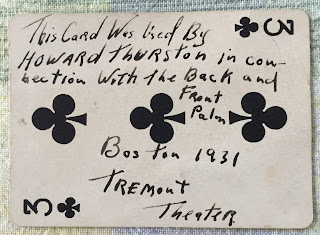 3
This Card Was Used By
HOWARD Thurston in con-
nection With the Back and
Front
Palm
Boston 1931
TREMONT
Theater
3